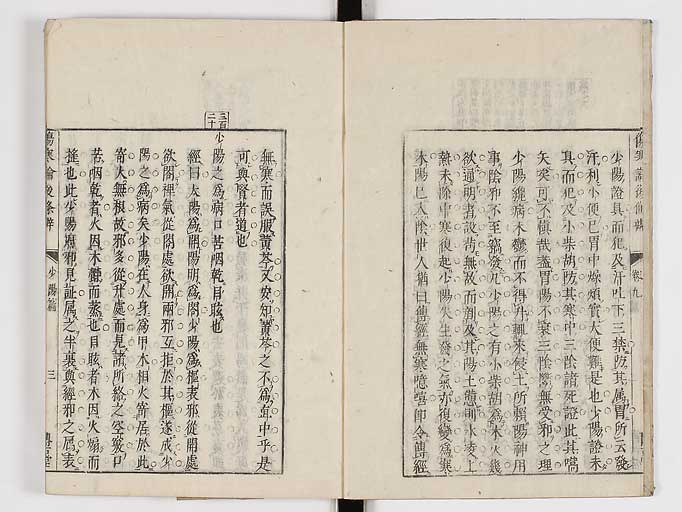 少陽證具而犯及汗吐下三禁防其屬胃所云發
汗利小便已胃中燥煩實大便難是也少陽證未
具而犯及小柴胡防其寒中三陰諸死證此其噶
矢突可不慎哉蓋胃陽不衰三陰無受邪之理
少陽纔病木鬱而不得升輒來侮土所賴陽神用
事陰邪不至少陽之有小柴胡為木火幾
欲通明者設苟無故而削及其陽土憊則水凌上
熱未除中寒復起少陽失生發之氣亦復變為寒
木陽已入陰世人猶曰傳經無寒噫嘻即令傳經
傷寒論後條辨
卷九
無寒而誤服黃芩又安知黃芩之不為中乎是
可與賢者道也
三百二十
少陽之為病口苦咽乾目眩也
經曰太陽為開陽明為闔少陽為樞表邪從開處
欲闔裡氣從闔處欲開兩邪互拒於其樞遂成少
陽之為病矣少陽在人身為甲木相火寄居於此
寄人無根故邪多從升處而見諸所絡之空竅口
苦咽乾者火因木鬱而蒸也目眩者木因火煽而
搖也此少陽府邪見證屬之半裏與經邪之屬表
傷寒論後條辨
少陽篇
三